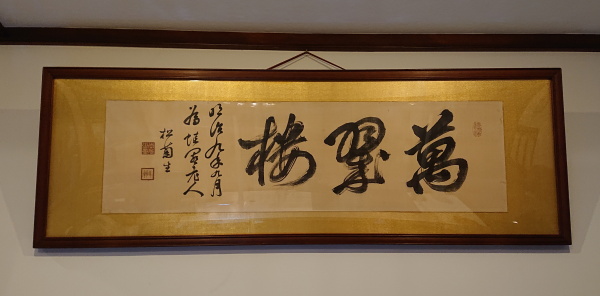 萬翠楼
明治九年九月
為蛙園老人
松菊生